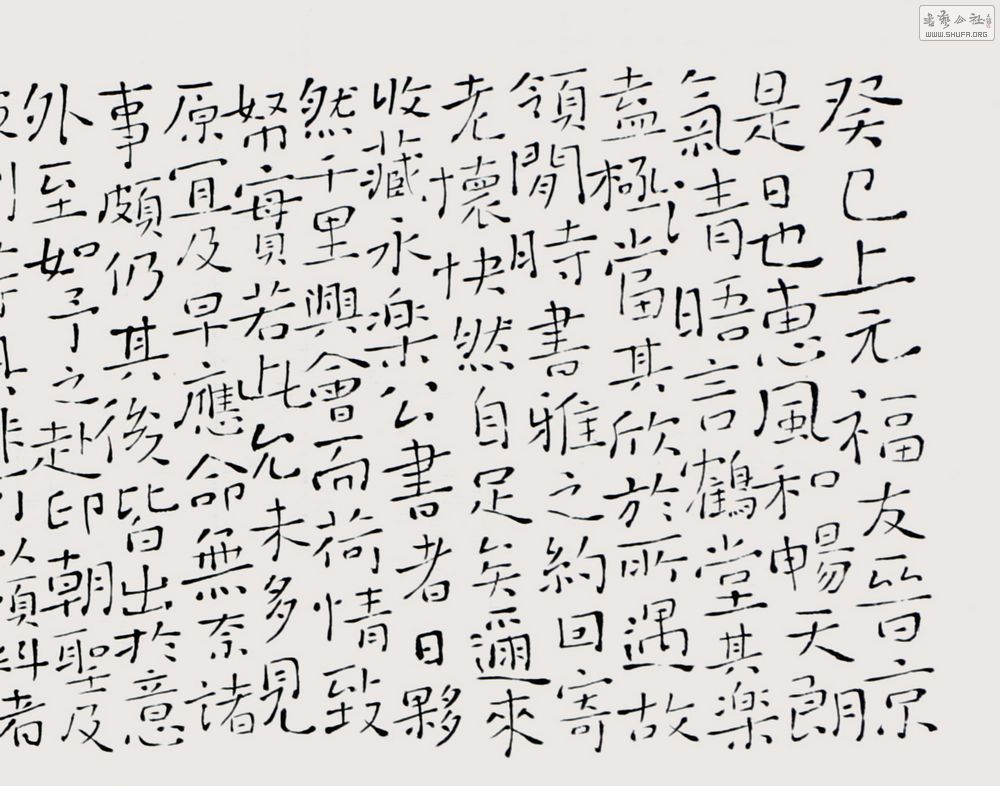 癸巳上元福友晉京
是日也惠風和暢天朗
氣清晤言鶴堂其楽
盍極當其欣於所遇故
領閒時書雅之約回寄
老懷快然自足矣邇來
收藏永楽公書者日夥
然千里興會而荷情致
帑實若此允未多見
原宜及早應命無奈諸
事頗仍其後皆出於意
外至如予之赴印朝聖及
書藝公社
WWW.SHUFA.ORG